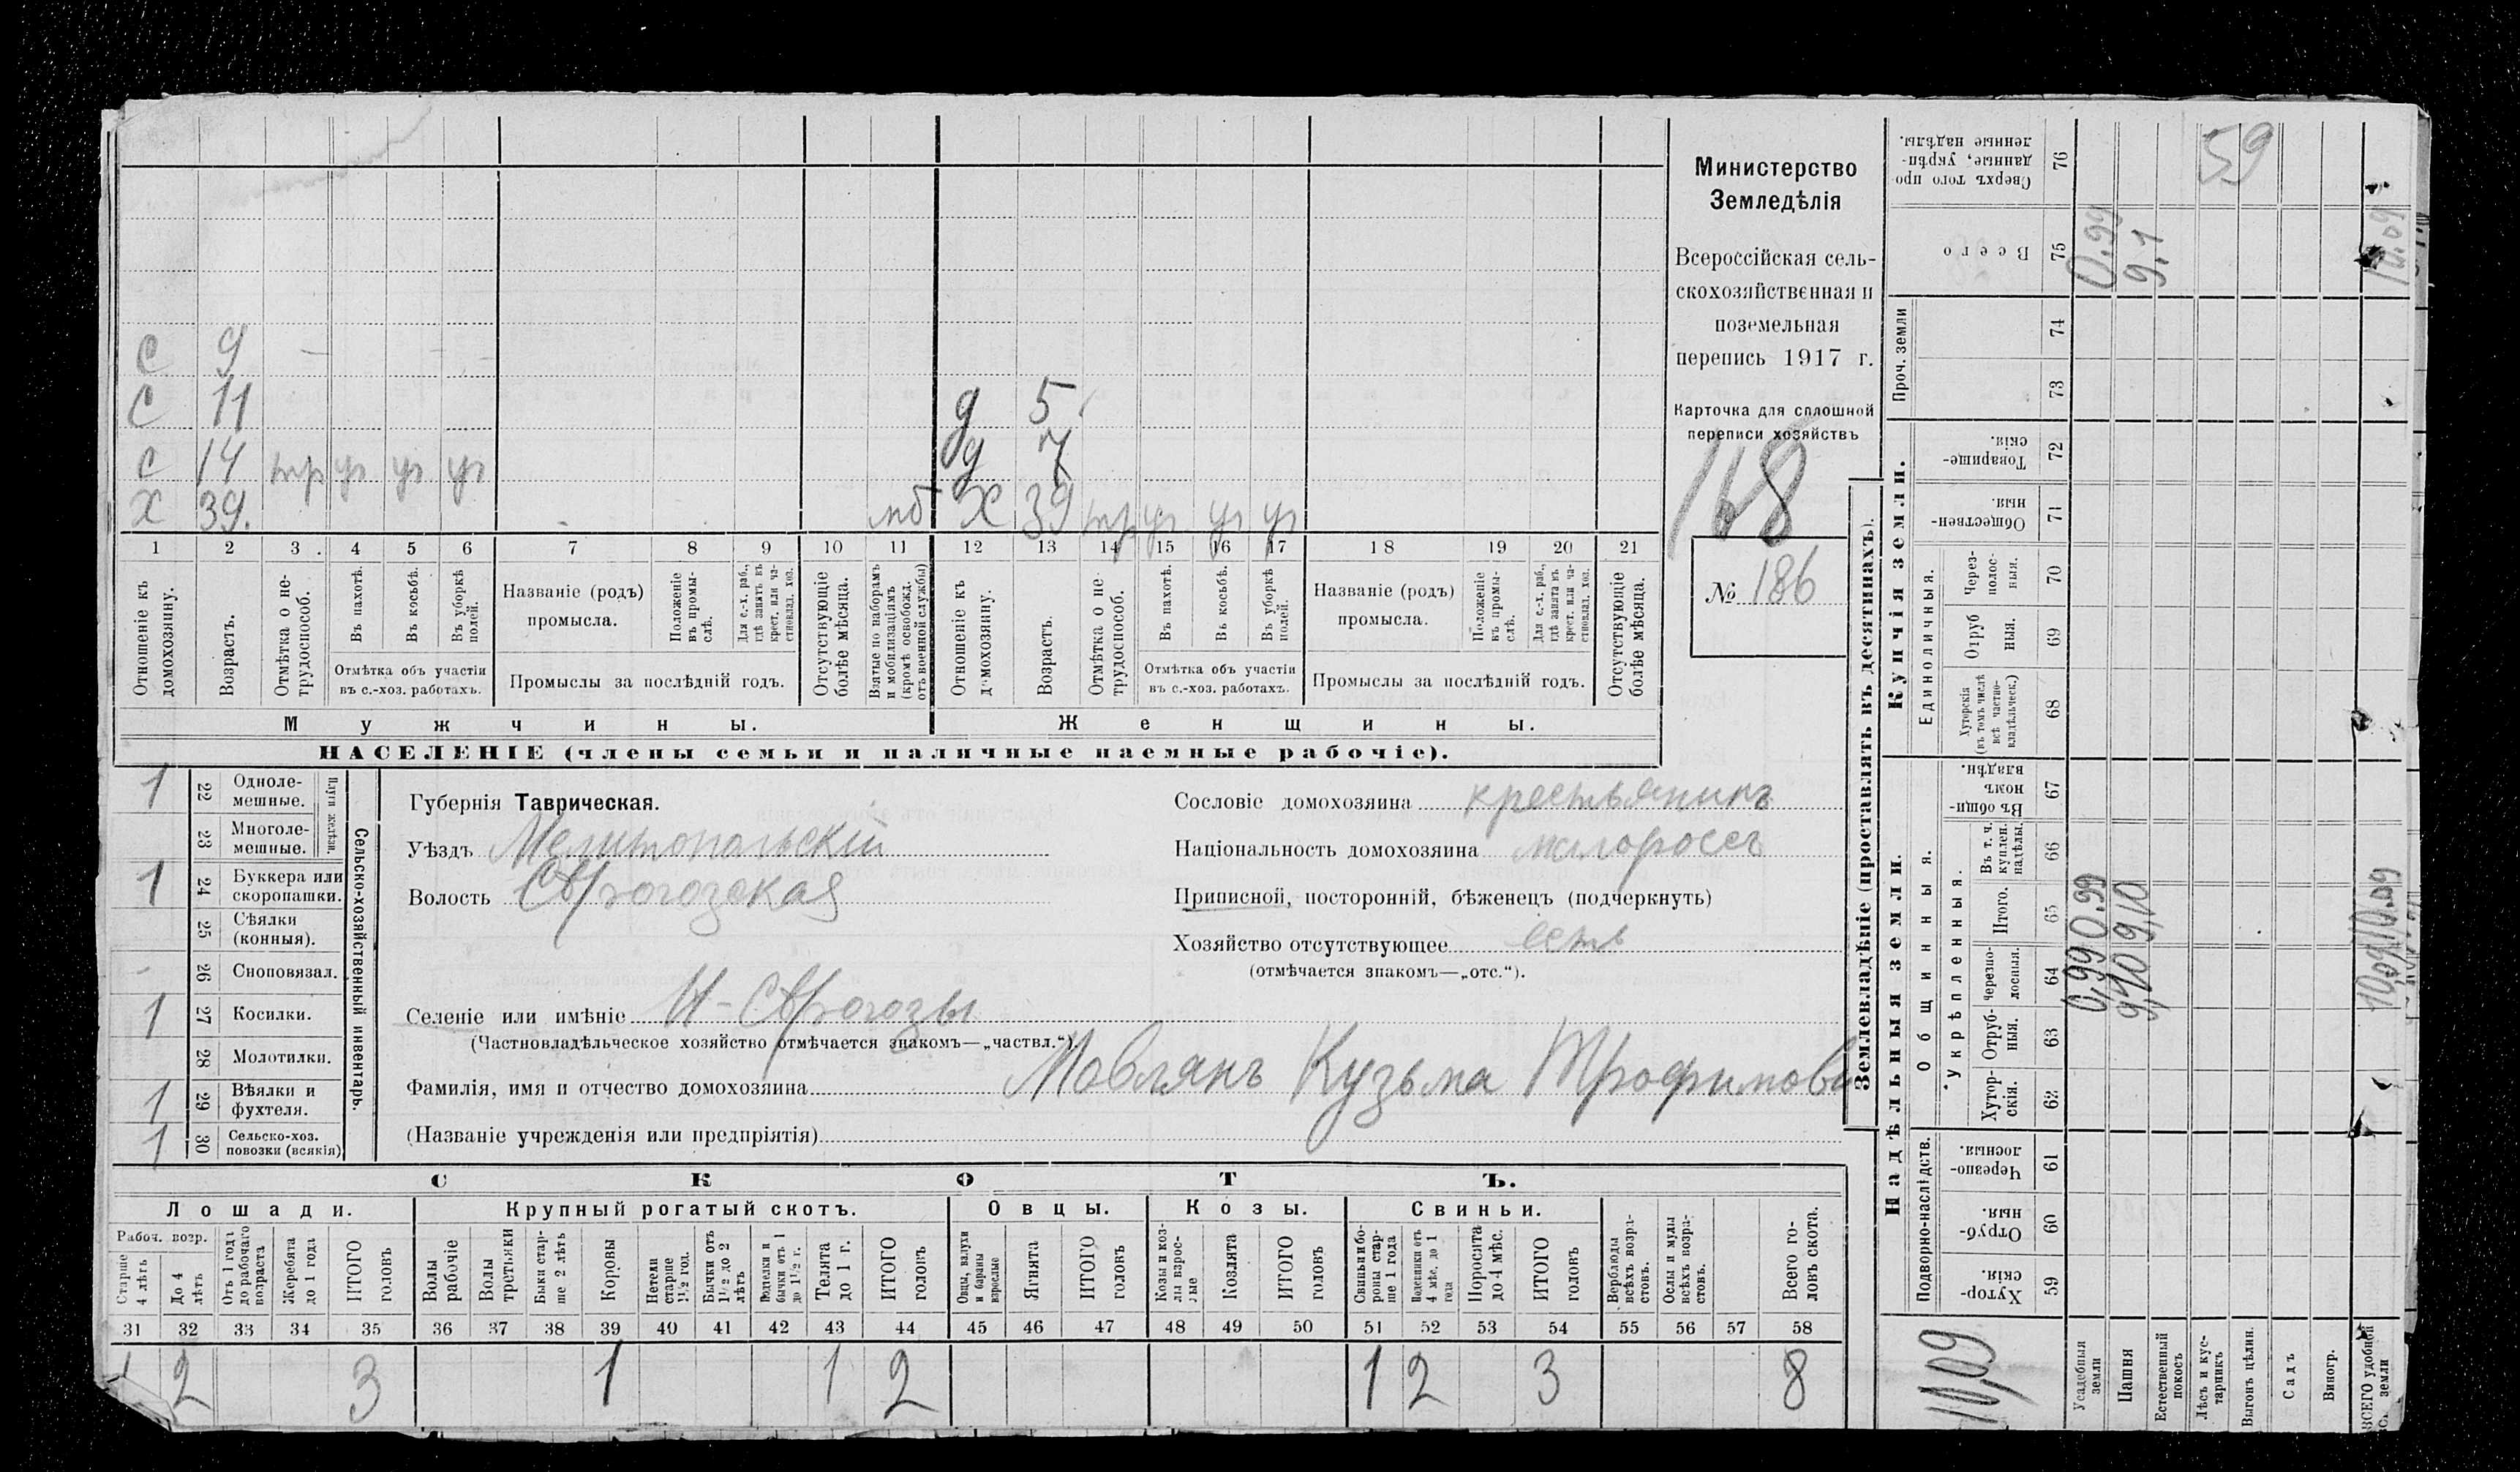 С 9 –
С 11 д 5
С 14 тр уч уч уч д 7
Х 39. мб Х 39 тр уч уч уч
1 2 3 4 5 6 7 8 9 10 11 12 13 14 15 16 17 18 19 20 21
Отношеніе къ домохозяину.
Возрастъ.
Отмѣтка о не-трудоспособ.
Въ пахотѣ.
Въ косьбѣ.
Въ уборкѣ полей.
Отмѣтка объ участіи въ с.-хоз. работахъ.
Названіе (родъ) промысла.
Положеніе въ промы-слѣ.
Для с.-х. раб., гдѣ занятъ въ крест. или ча-стновлад. хоз.
Промыслы за послѣдній годъ.
Отсутствующіе болѣе мѣсяца.
Взятые по наборамъ и мобилизаціямъ (кромѣ освобожд. отъ военной службы)
Отношеніе къ домохозяину.
Возрастъ.
Отмѣтка о не-трудоспособ.
Въ пахотѣ.
Въ косьбѣ.
Въ уборкѣ полей.
Отмѣтка объ участіи въ с.-хоз. работахъ.
Названіе (родъ) промысла.
Положеніе въ промы-слѣ.
Для с.-х. раб., гдѣ занята въ крест. или ча-стновлад. хоз.
Промыслы за послѣдній годъ.
Отсутствующіе болѣе мѣсяца.
Мужчины. Женщины.
НАСЕЛЕНІЕ (члены семьи и наличные наемные рабочіе).
Министерство
Земледѣлія
Всероссійская сель-
скохозяйственная и
поземельная
перепись 1917 г.
Карточка для сплошной
переписи хозяйствъ
168
№ 186
1 22 Одноле-мешные.
23 Многоле-мешные.
Плуги желѣзн.
1 24 Буккера или скоропашки.
25 Сѣялки (конныя).
- 26 Сноповязал.
1 27 Косилки.
28 Молотилки.
1 29 Вѣялки и фухтеля.
1 30 Сельско-хоз. повозки (всякія)
Сельско-хозяйственный инвентарь.
Губернія Таврическая.
Уѣздъ Мелитопольскій
Волость
Селеніе или имѣніе
(Частновладѣльческое хозяйство отмѣчается знакомъ—„частвл.“).
Фамилія, имя и отчество домохозяина Мовлянъ Кузьма Трофимови
(Названіе учрежденія или предпріятія)
Сословіе домохозяина крестьянинъ
Національность домохозяина малороссъ
Приписной, посторонній, бѣженецъ (подчеркнуть)
Хозяйство отсутствующее есть
(отмѣчается знакомъ—„отс.“).
СКОТЪ.
Лошади. Крупный рогатый скотъ. Овцы. Козы. Свиньи.
Рабоч. возр.
Старше 4 лѣтъ
До 4 лѣтъ
Отъ 1 года до рабочаго возраста
Жеребята до 1 года
ИТОГО головъ
Волы рабочіе
Волы третьяки
Быки стар-ше 2 лѣтъ
Коровы
Нетели старше 1½ год.
Бычки отъ 1½ до 2 лѣтъ
Подтелки и бычки отъ 1 до 1½ г.
Телята до 1 г.
ИТОГО головъ
Овцы, валухи и бараны взрослые
Ягнята
ИТОГО головъ
Козы и коз-лы взрос-лые
Козлята
ИТОГО головъ
Свиньи и бо-ровы стар-ше 1 года
Подсвинки отъ 4 мѣс. до 1 года
Поросята до 4 мѣс.
ИТОГО головъ
Верблюды всѣхъ возра-стовъ.
Ослы и мулы всѣхъ возра-стовъ.
Всего го-ловъ скота.
31 32 33 34 35 36 37 38 39 40 41 42 43 44 45 46 47 48 49 50 51 52 53 54 55 56 57 58
1 2 3 1 1 2 1 2 3 8
Землевладѣніе (проставлять въ десятинахъ).
Купчія земли.
Надѣльныя земли.
Сверхъ того про-данные, укрѣп-ленные надѣлы. 76 59
Всего 75 0.99 9.1 10.09
Проч. земли 74
73
Товарище-скія. 72
Обществен-ныя 71
Единоличныя.
Через-полос-ныя. 70
Отруб ныя. 69
Хуторскія (въ томъ числѣ всѣ частно-владѣльческ.) 68
Общинныя.
Въ общи-номъ владѣн. 67
Укрѣпленныя.
Въ т. ч. куплен. надѣлы. 66
Итого. 65 0.99 9,10 10.09
Черезпо-лосныя. 64 0,99 9,10 10,09
Отруб-ныя. 63
Хутор-скія. 62
Подворно-наслѣдств.
Черезпо-лосныя. 61
Отруб-ныя. 60
Хутор-скія. 59
10,09
Усадебныя земли
Пашня
Естественный покосъ
Лѣсъ и кус-тарникъ
Выгонъ цѣлин.
Садъ
Виногр.
ВСЕГО удобной земли